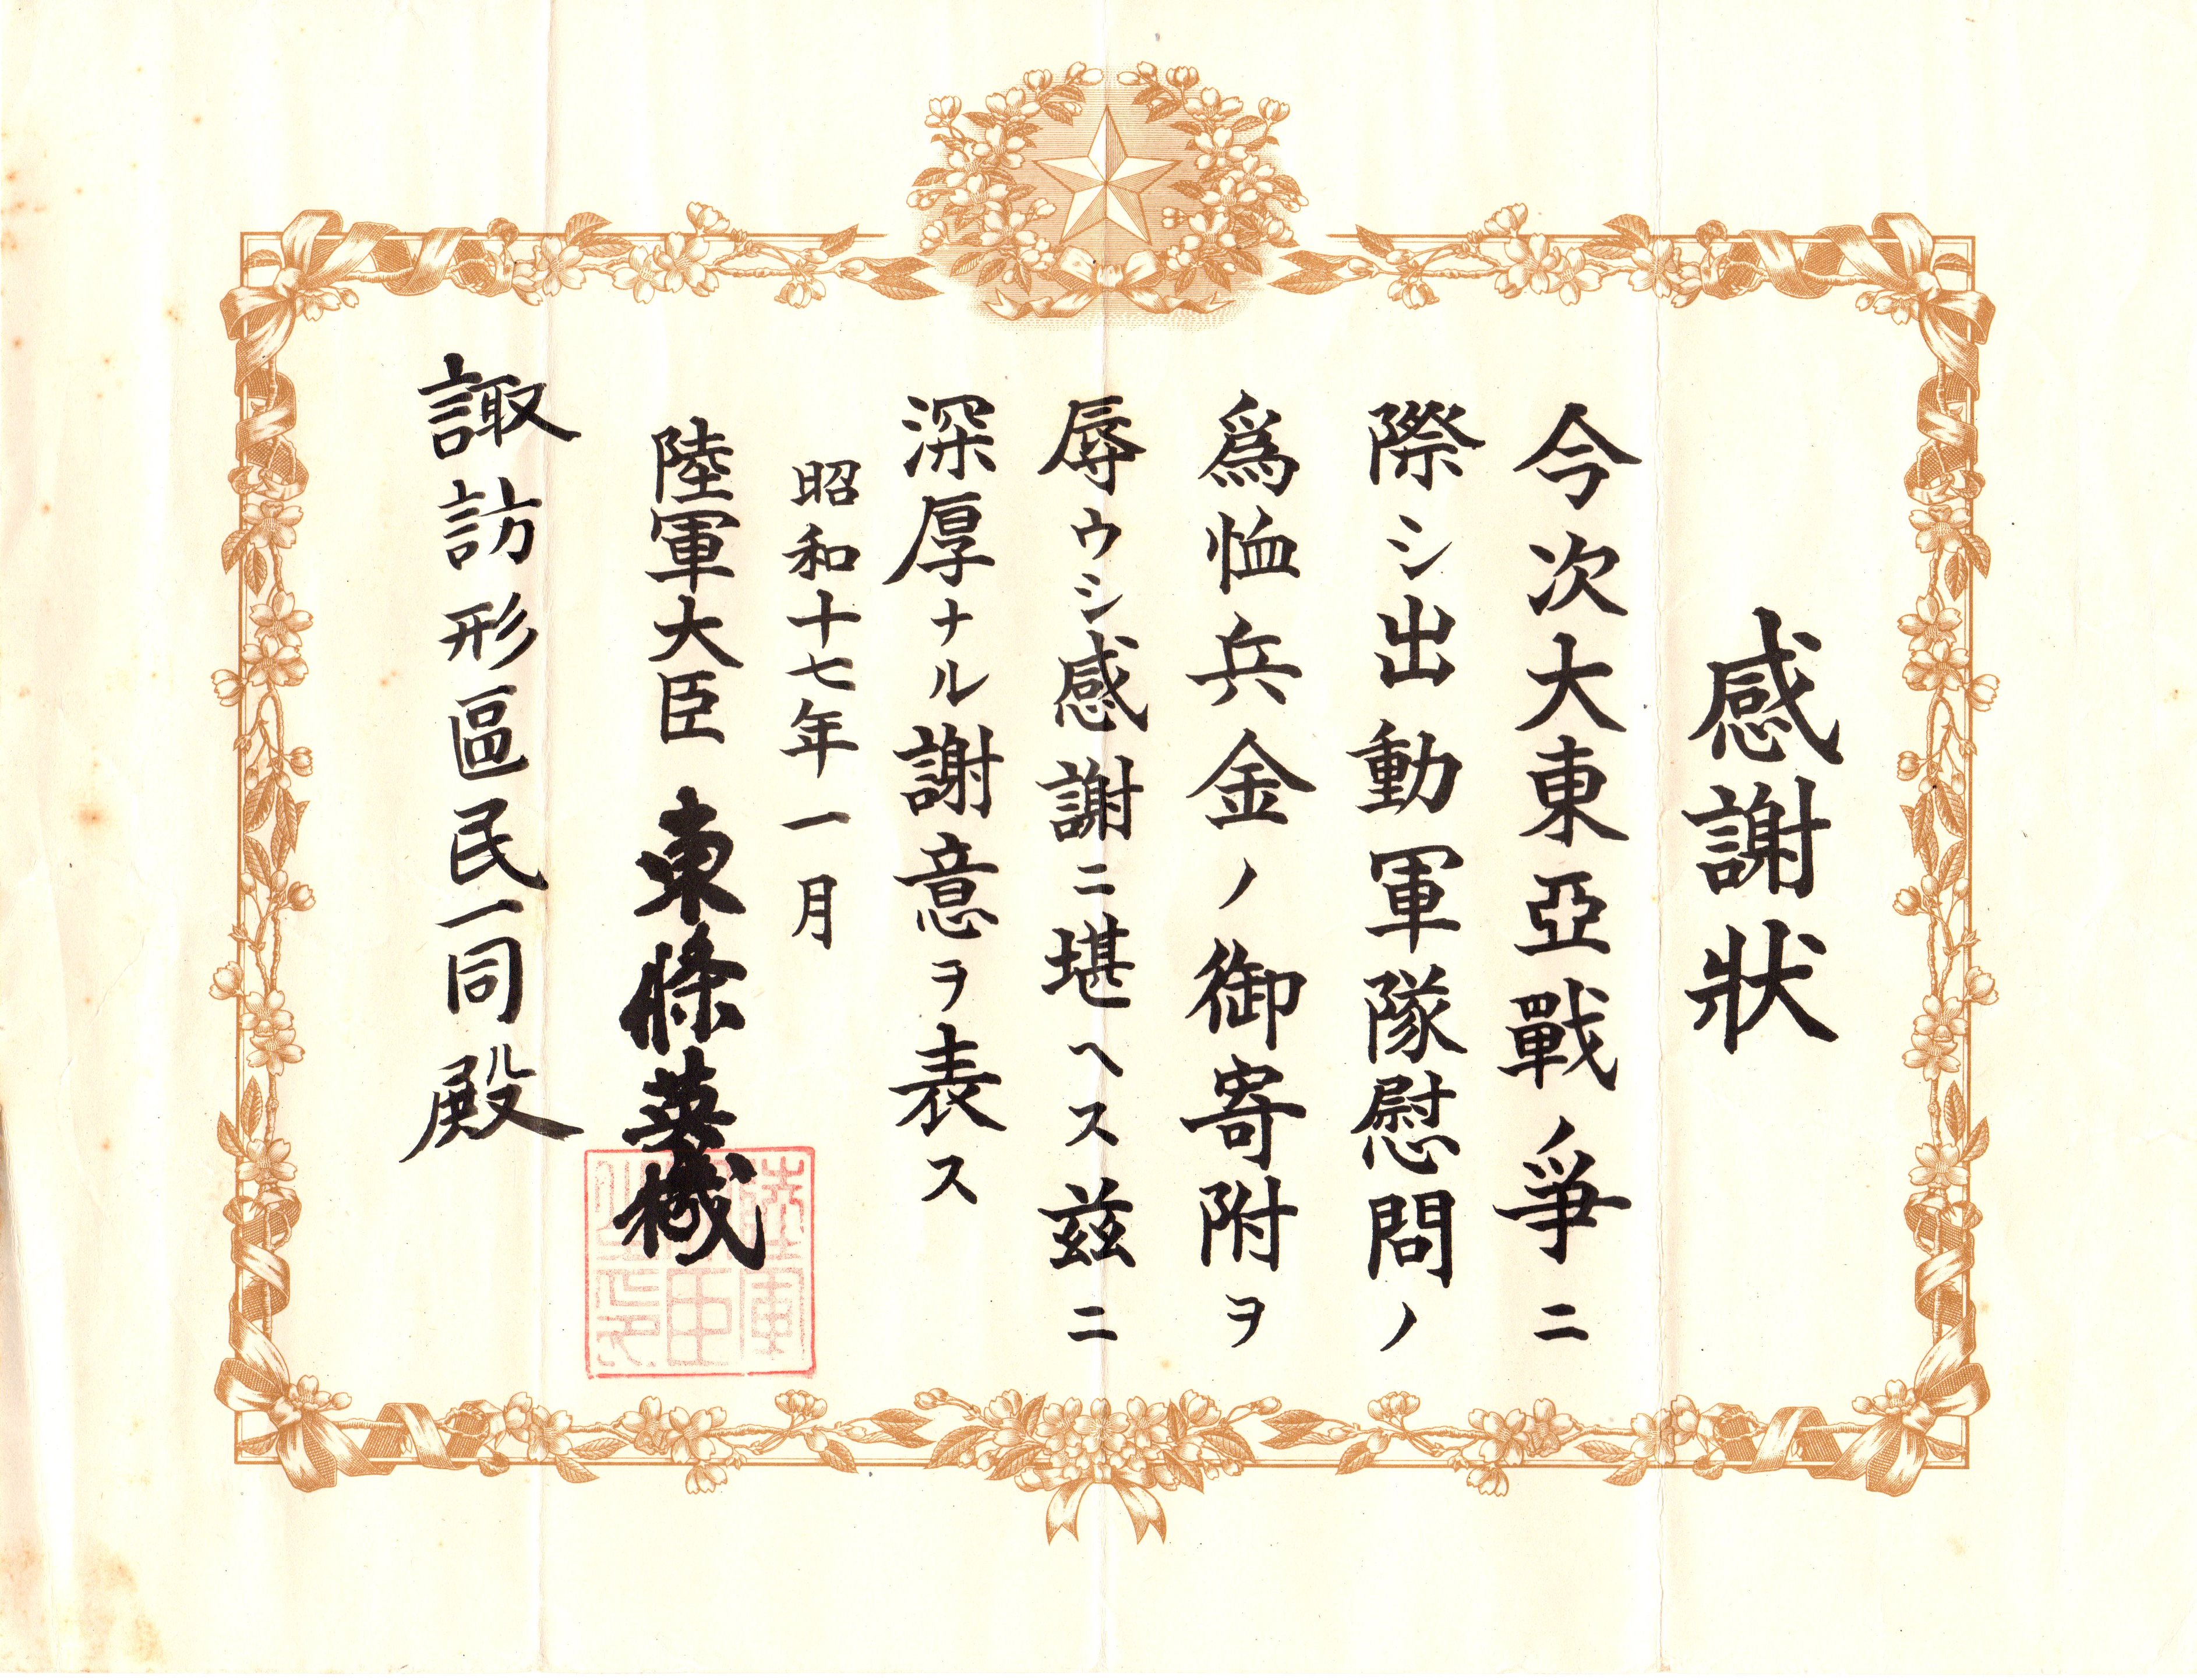 感謝狀
今次大東亞戰爭ニ
際シ出動軍隊慰問ノ
爲恤兵金ノ御寄附ヲ
辱ウシ感謝ニ堪ヘス茲ニ
深厚ナル謝意ヲ表ス
昭和十七年一月
陸軍大臣 東條英機
陸軍
大臣
之印
諏訪形區民一同殿